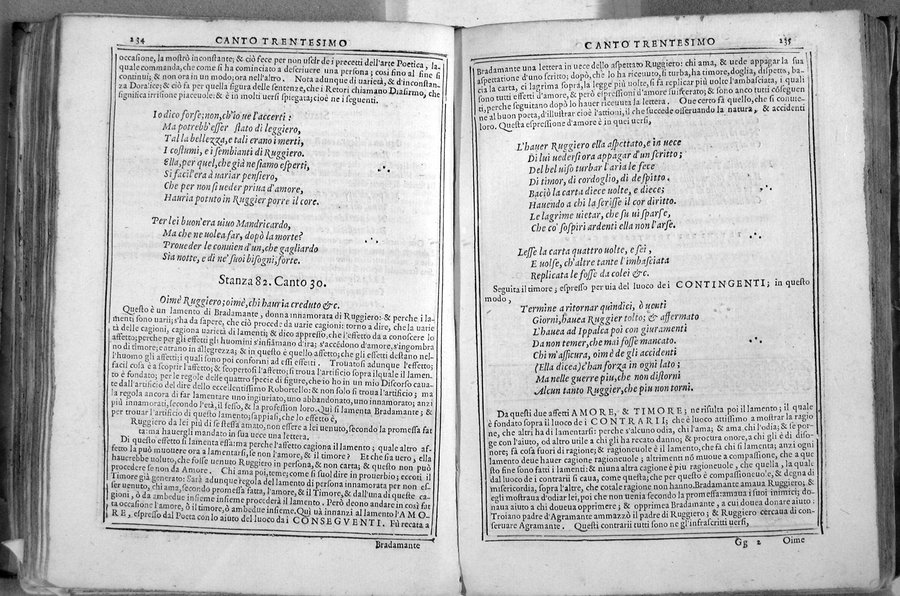 234
CANTO TRENTESIMO
occasione, la mostrò inconstante; & ciò fece per non usar de i precetti dell'arte Poetica, la,
quale commanda, che come si ha cominciato a descriuere una persona; così sino al fine si
continui; & non ora in un modo; ora nell'altro. Nota adunque di uarietà, & d'inconstan-
za Doralice; & ciò fa per quella figura delle sentenze, che i Retori chiamano Diasirmo, che
significa irrisione piaceuole: & è in molti uersi spiegata; cioè ne i seguenti.
Io dico forse; non, ch'io ue l'accerti:
Ma potrebb'esser stato di leggiero,
Tal la bellezza, e tali erano i merti,
I costumi, e i sembianti di Ruggiero.
Ella, per quel, che già ne siamo esperti,
Si facil'era à uariar pensiero,
Che per non si ueder priua d'amore,
Hauria potuto in Ruggier porre il core.
Per lei buon'era uiuo Mandricardo,
Ma che ne uolea far, dopò la morte?
Proueder le conuien d'un, che gagliardo
Sia notte, e dì ne' suoi bisogni, forte.
Stanza 82. Canto 30.
Oimè Ruggiero; oimè, chi hauria creduto &c.
Questo è un lamento di Bradamante, donna innamorata di Ruggiero: & perche i la-
menti sono uarii; s'ha da sapere, che ciò procede da uarie cagioni: torno a dire, che la uarie
tà delle cagioni, cagiona uarietà di lamenti; & dico appresso, che l'effetto da a conoscere lo
affetto; perche per gli effetti gli huomini s'infiammano d'ira; s'accendono d'amore, s'ingombra
no di timore; entrano in allegrezza; & in questo e quello affetto; che gli effetti destano nel-
l'huomo gli affetti; i quali sono poi conformi ad essi effetti. Trouatosi adunque l'effetto;
facil cosa è a scoprir l'affetto; & scopertosi l'affetto; si troua l'artificio sopra il quale il lamen-
to è fondato; per le regole delle quattro specie di figure, che io ho in un mio Discorso caua-
te dall'artificio del dire dello eccellentissimo Robortello; & non solo si troua l'artificio; ma
la regola ancora di far lamentare uno ingiuriato, uno abbandonato, uno innamorato; anzi
più innamorati, secondo l'età, il sesso, & la profession loro. Qui si lamenta Bradamante; &
per trouar l'artificio di questo lamento; sappiasi, che lo effetto è,
Ruggiero da lei più di se stessa amato, non essere a lei uenuto, secondo la promessa fat
ta: ma hauergli mandato in sua uece una lettera.
Di questo effetto si lamenta essa: ma perche l'affetto cagiona il lamento; quale altro af-
fetto la può muouere ora a lamentarsi, se non l'amore, & il timore? Et che sia uero; ella
hauerebbe uoluto, che fosse uenuto Ruggiero in persona, & non carta; & questo non può
procedere se non da Amore. Chi ama poi, teme; come si suol dire in prouerbio; eccoti il
Timore già generato: Sarà adunque regola del lamento di persona innamorata per non es-
ser uenuto, chi ama, secondo promessa fatta, l'amore, & il Timore, & dall'una di queste ca-
gioni, ò da ambedue insieme insieme procederà il lamento. Però deono andando in cer-
ta occasione l'amore, ò il timore, ò ambedue insieme. Qui uà innanzi al lamento l'AMO-
RE, espresso dal Poeta con lo aiuto del luoco da i CONSEGVENTI. Fù recata a
Bradamante
CANTO TRENTESIMO
235
Bradamante una lettera in uece dello aspettato Ruggiero: chi ama, & uede appagar la sua
aspettatione d'uno scritto; dopò, che lo ha riceuuto, si turba, ha timore, doglia, dispetto, ba-
cia la carta, ci lagrima sopra, la legge più uolte, si fà replicar più uolte l'ambasciata, i quali
sono tutti effetti d'amore, & però espressioni d'amore susseruato; & sono anco tutti cōseguen
ti, perche seguitano dopò lo hauer riceuuta la lettera. Que certo fà quello, che si conuie-
ne al buon poeta, d'illustrar cioè l'attioni, il che succede osseruando la natura, & accidenti
loro. Questa espressione d'amore è in quei uersi,
L'hauer Ruggiero ella aspettato, e in uece
Di lui uedersi ora appagar d'un scritto;
Del bel uiso turbar l'aria le fece
Di timor, di cordoglio, di despitto.
Baciò la carta diece uolte, e diece;
Hauendo a chi la scrisse il cor diritto.
Le lagrime uietar, che sù ui sparse,
Che co' sospiri ardenti ella non l'arse.
Lesse la carta quattro uolte, e sei,
E uolse, ch'altre tante l'imbasciata
Replicata le fosse da colei &c.
Seguita il timore; espresso per uia del luoco de i CONTINGENTI; in questo
modo,
Termine a ritornar quindici, ò uenti
Giorni, hauea Ruggier tolto; & affermato
L'hauea ad Ippalca poi con giuramenti
Da non temer, che mai fosse mancato.
Chi m'assicura, oimè de gli accidenti
(Ella dicea) c'han forza in ogni lato;
Ma nelle guerre più, che non distorni
Alcun tanto Ruggier, che più non torni.
Da questi due affetti AMORE, & TIMORE; ne risulta poi il lamento; il quale
è fondato sopra il luoco de i CONTRARII; che è luoco attissimo a mostrar la ragio
ne, che altri ha di lamentarsi: perche s'alcuno odia, chi l'ama; & ama chi l'odia; & se por-
ge con l'aiuto, od altro utile a chi gli ha recato danno; & procura onore, a chi gli è di disо-
nore; fà cosa fuori di ragione; & ragioneuole è il lamento, che fà chi si lamenta; anzi ogni
lamento deue hauer cagione ragioneuole; altrimenti nō muoue a compassione, che a que
sto fine sono fatti i lamenti: & niuna altra cagione è piu ragioneuole, che quella, la qual
dal luoco de i contrarii si caua, come questa; che per questo è compassioneuole, & degna di
misericordia, sopra l'altre, che cotale ragione non hanno. Bradamante amaua Ruggiero; &
egli mostraua d'odiar lei, poi che non uenia secondo la promessa: amaua i suoi inimici; do-
naua aiuto a chi doueua opprimere; & opprimea Bradamante, a cui douea donare aiuto.
Troiano padre d'Agramante ammazzò il padre di Ruggiero; & Ruggiero cercaua di con-
seruare Agramante. Questi contrarii tutti sono ne gl'infrascritti uersi,
Gg 2
Oime